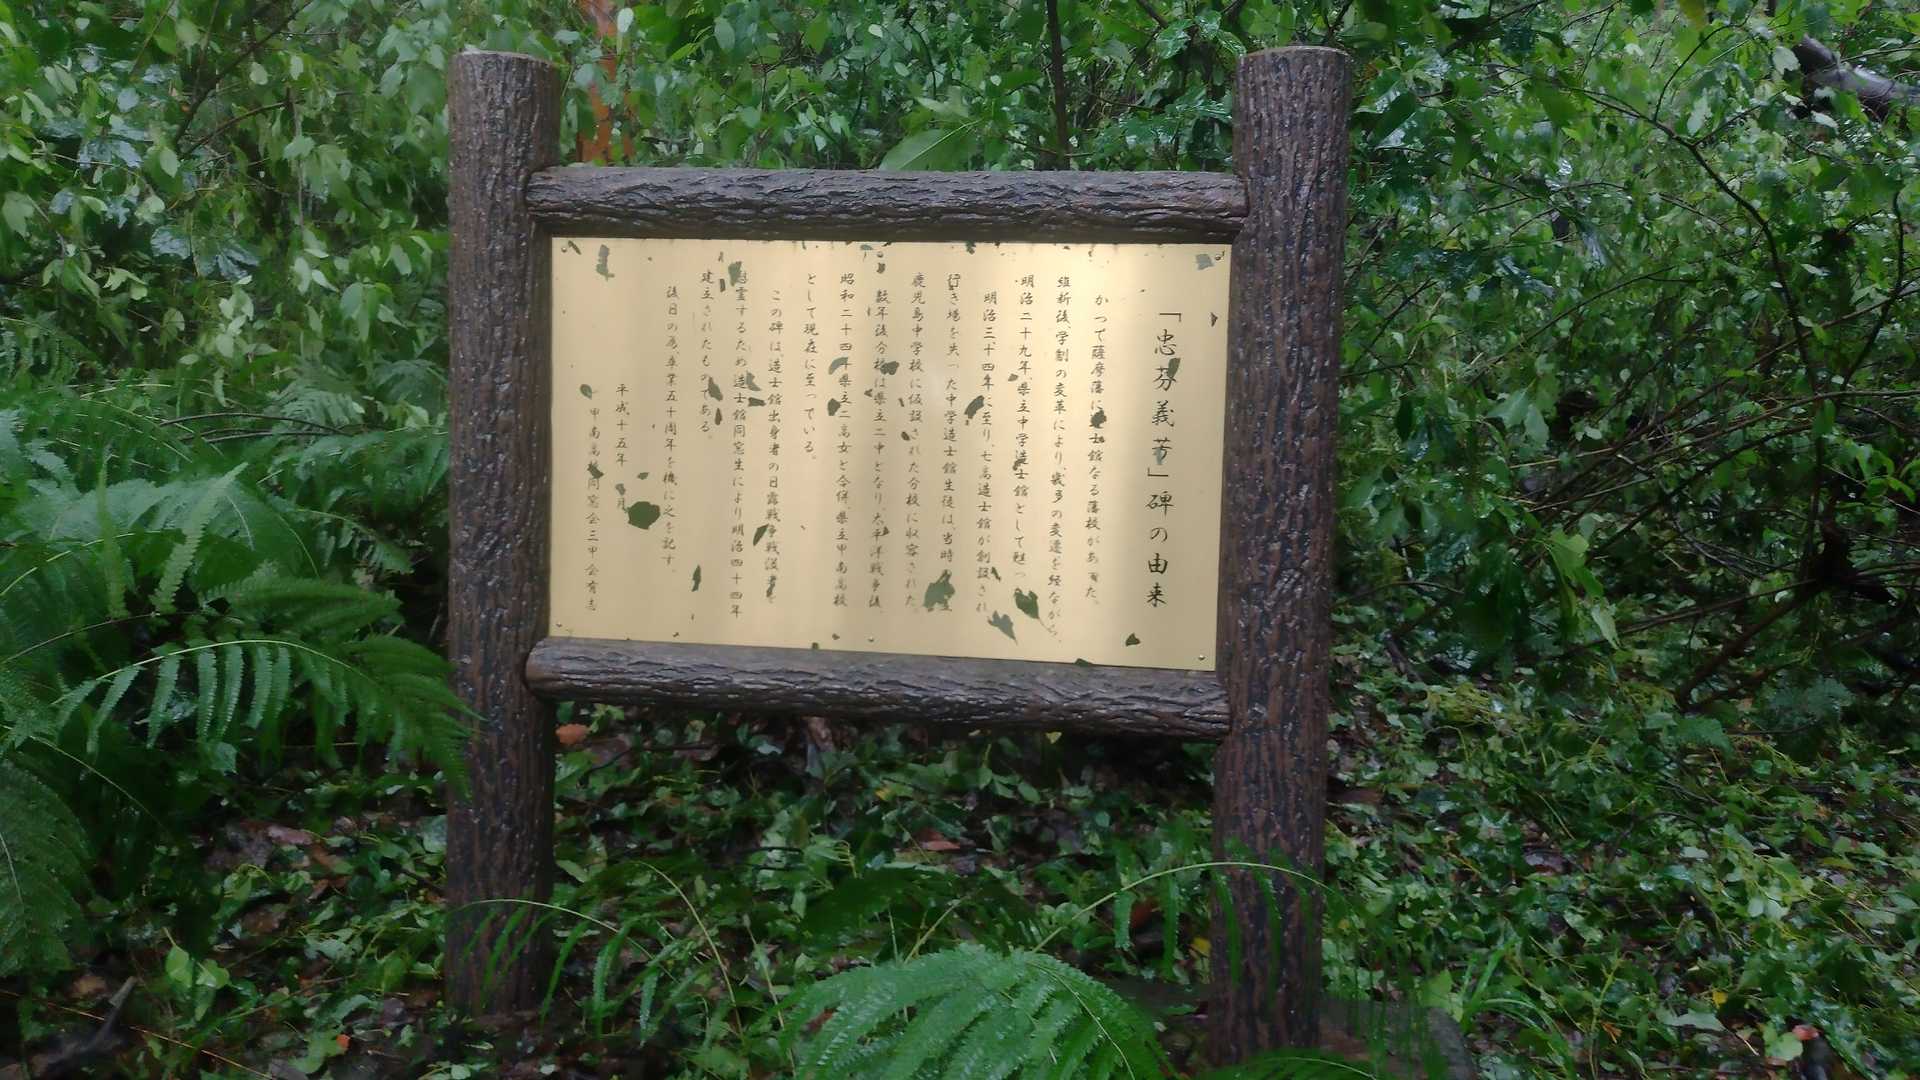 「忠芬義芳」碑の由来
かつて薩摩藩に士館なる藩校があった。
維新後、学制の変革により、幾多の変遷を経ながら、
明治二十九年、県立中学造士館として甦っ
明治三十四年に至り、七高造士館が創設され
行き場を失った中学造士館生徒は、当時
鹿児島中学校に仮設された分校に収容された。
数年後分校は県立二中となり、太平洋戦争後、
昭和二十四年県立二高女と合併、県立甲南高校
として現在に至っている。
この碑は、造士館出身者の日露戦争戦没者を
慰霊するため造士館同窓生により明治四十四年
建立されたものである。
後日の為卒業五十周年を機に之を記す。
平成十五年 月
甲南高校同窓会三甲会有志